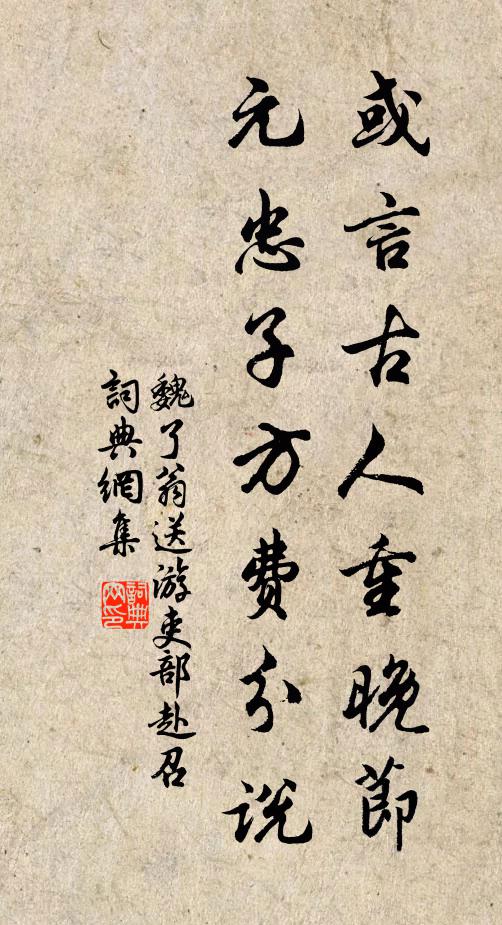 或言古人重晚節
元忠子方費分說
魏了翁送游吏部赴召
詞典網集
詞典
网印